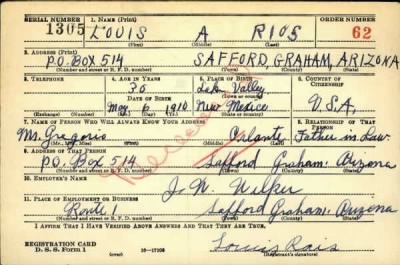 SERIAL NUMBER 1. NAME (Print) ORDER NUMBER
1305 LOUIS A RIOS 62
(First) (Middle) (Last)
2. ADDRESS (Print)
P.O. BOX 514 SAFFORD, GRAHAM, ARIZONA
(Number and street or R. F. D. number) (Town) (County) (State)
3. TELEPHONE 4. AGE IN YEARS 5. PLACE OF BIRTH 6. COUNTRY OF CITIZENSHIP
30 Lake Valley
DATE OF BIRTH (Town or county)
May 6 1910 New Mexico U.S.A.
(Exchange) (Number) (Mo.) (Day) (Yr.) (State or country)
7. NAME OF PERSON WHO WILL ALWAYS KNOW YOUR ADDRESS 8. RELATIONSHIP OF THAT PERSON
Mr. Gregorio Father in Law.
(Mr., Mrs., Miss) (First) (Middle) (Last)
9. ADDRESS OF THAT PERSON
P.O. Box 514 Safford Graham. Arizona
(Number and street or R. F. D. number) (Town) (County) (State)
10. EMPLOYER'S NAME
11. PLACE OF EMPLOYMENT OR BUSINESS
Route 1 Safford Graham. Arizona
(Number and street or R. F. D. number) (Town) (County) (State)
I AFFIRM THAT I HAVE VERIFIED ABOVE ANSWERS AND THAT THEY ARE TRUE.
REGISTRATION CARD
D. S. S. Form 1 (over) Louis Rais
(Registrant's signature)